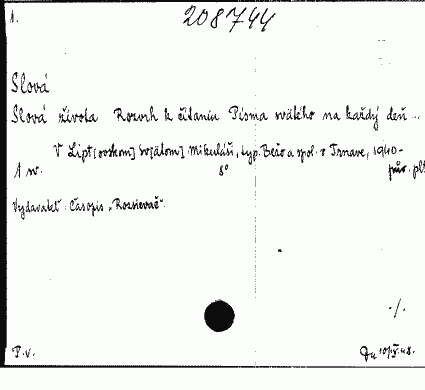 1.
208744
Slová
Slová života Rozvrh k čítaniu Písma svätého na každý deň ...
V Lipt[ovskom] Sv[ätom] Mikuláši, typ. Bežo a spol. v Trnave, 1940-
1 sv. 8° pův. plt
Vydavateľ: Časopis „Rozsievač“.
./.
P.v. 10/IX.48.